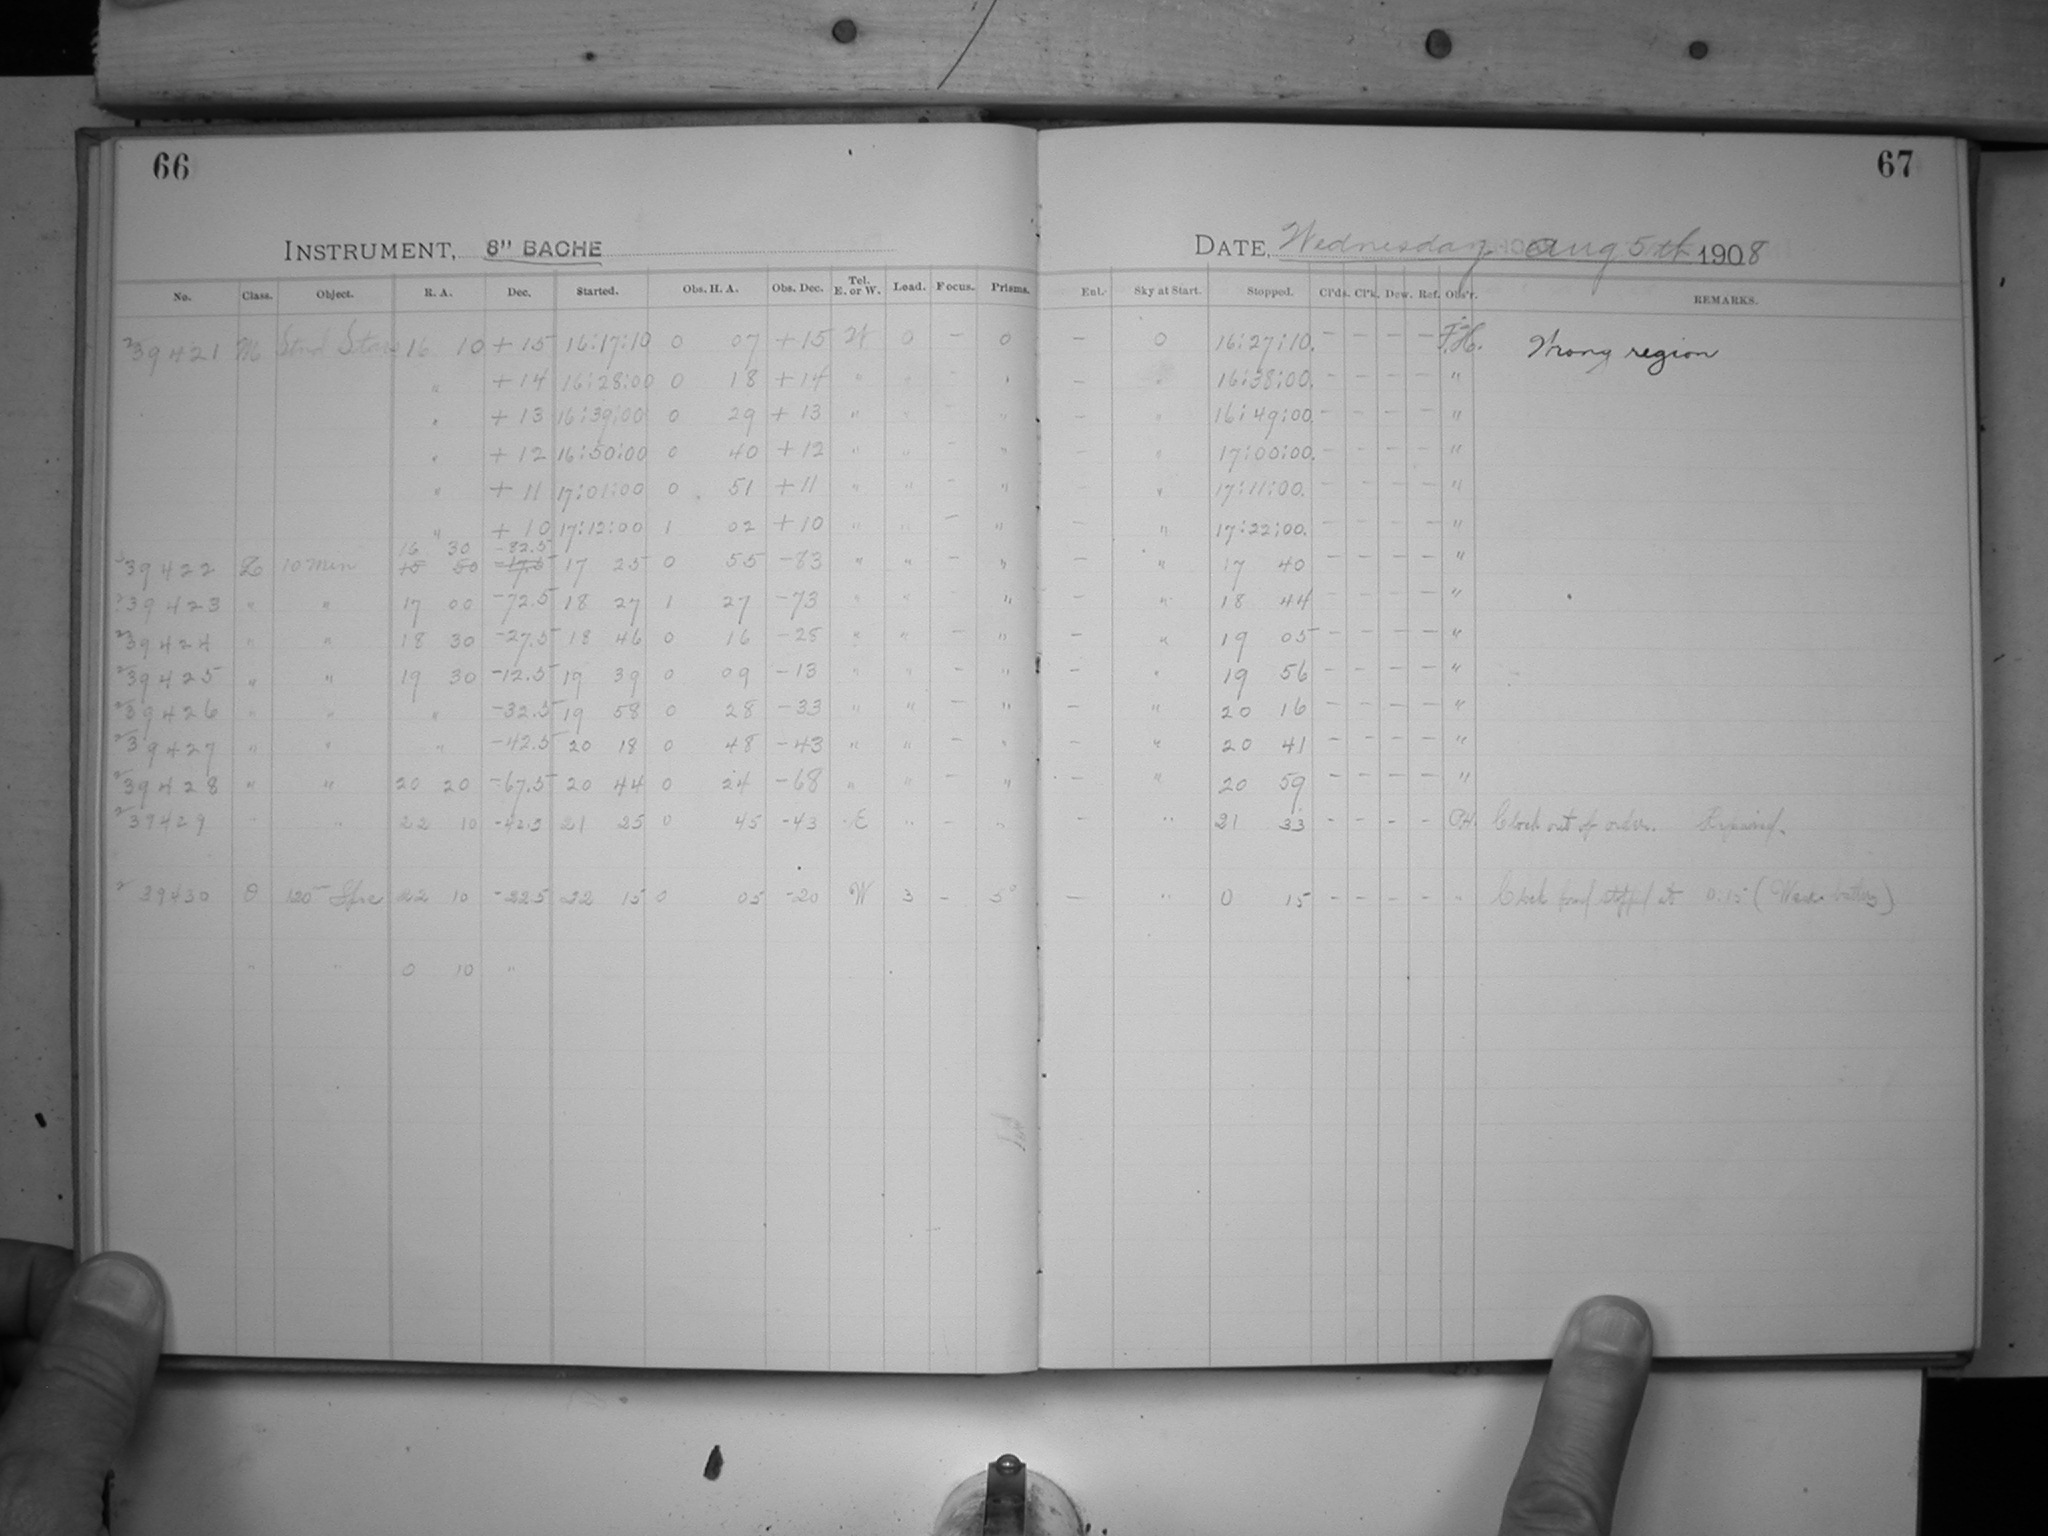 66
67
INSTRUMENT, 8" BACHE
DATE, Wednesday Aug 5th 1908
No. Class. Object. R. A. Dec. Started. Obs. H. A. Obs. Dec. Tel. E. or W. Load. Focus. Prisms. Enl. Sky at Start. Stopped. Cl'ds. Cl'k. Dew. Ref. Obs'r. REMARKS.
39421 M Stnd Stars 16 10 +15 16:17:10 0 07 +15 W 0 – 0 – 0 16:27:10. – – – – F.H. Wrong region
" +14 16:28:00 0 18 +14 " " – " – " 16:38:00. – – – – "
" +13 16:39:00 0 29 +13 " " – " – " 16:49:00. – – – – "
" +12 16:50:00 0 40 +12 " " – " – " 17:00:00. – – – – "
" +11 17:01:00 0 51 +11 " " – " – " 17:11:00. – – – – "
" +10 17:12:00 1 02 +10 " " – " – " 17:22:00. – – – – "
16 30 -82.5
39422 Z 10 Min 15 50 -17.5 17 25 0 55 -83 " " – " – " 17 40 – – – – "
39423 " " 17 00 -72.5 18 27 1 27 -73 " " " – " 18 44 – – – – "
39424 " " 18 30 -27.5 18 46 0 16 -28 " " – " – " 19 05 – – – – "
39425 " " 19 30 -12.5 19 39 0 09 -13 " " – " – " 19 56 – – – – "
39426 " " " -32.5 19 58 0 28 -33 " " – " – " 20 16 – – – – "
39427 " " " -42.5 20 18 0 48 -43 " " – " – " 20 41 – – – – "
39428 " " 20 20 -67.5 20 44 0 24 -68 " " – " – " 20 59 – – – – "
39429 " " 22 10 -42.5 21 25 0 45 -43 E " – " – " 21 33 – – – – Clock out of order. Repaired.
39430 O 120 Spec 22 10 -22.5 22 15 0 05 -20 W 3 – 5° – " 0 15 – – – – " Clock found stopped at 0.15 (Weak battery)
" " 0 10 "